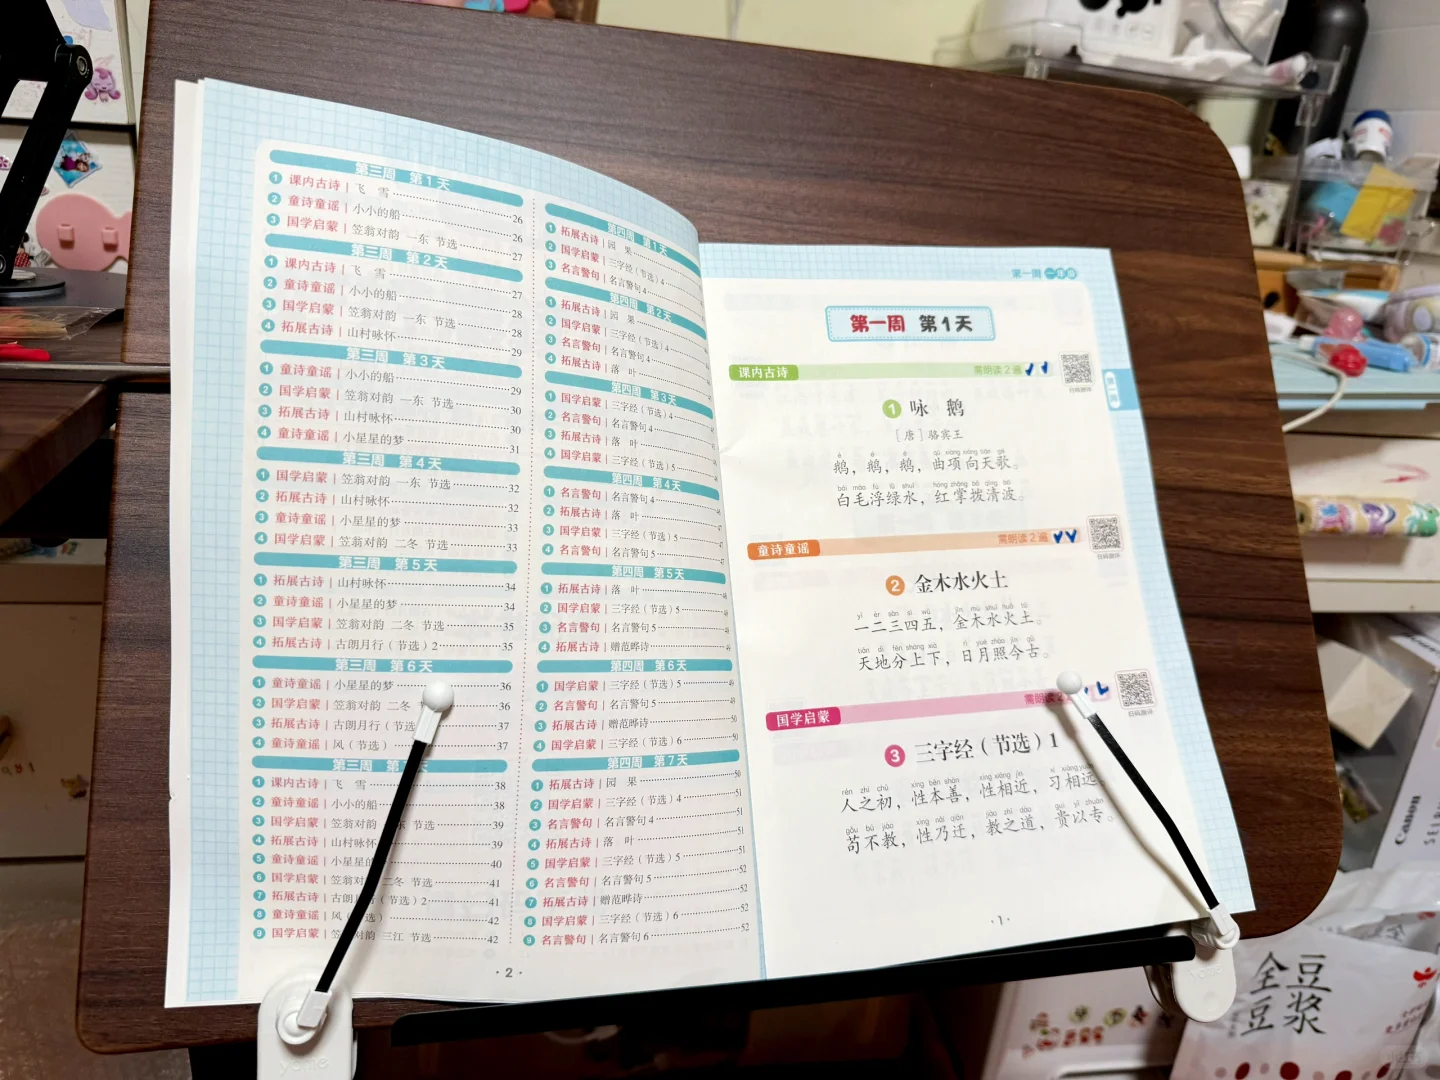 第三周 第1天
1 课内古诗 | 飞 雪 26
2 童诗童谣 | 小小的船 26
3 国学启蒙 | 笠翁对韵 一东 节选 27
第三周 第2天
1 课内古诗 | 飞 雪 27
2 童诗童谣 | 小小的船 28
3 国学启蒙 | 笠翁对韵 一东 节选 28
4 拓展古诗 | 山村咏怀 29
第三周 第3天
1 童诗童谣 | 小小的船 29
2 国学启蒙 | 笠翁对韵 一东 节选 30
3 拓展古诗 | 山村咏怀 30
4 童诗童谣 | 小星星的梦 31
第三周 第4天
1 国学启蒙 | 笠翁对韵 一东 节选 32
2 拓展古诗 | 山村咏怀 32
3 童诗童谣 | 小星星的梦 33
4 国学启蒙 | 笠翁对韵 二冬 节选 33
第三周 第5天
1 拓展古诗 | 山村咏怀 34
2 童诗童谣 | 小星星的梦 34
3 国学启蒙 | 笠翁对韵 二冬 节选 35
4 拓展古诗 | 古朗月行（节选）2 35
第三周 第6天
1 童诗童谣 | 小星星的梦 36
2 国学启蒙 | 笠翁对韵 二冬 36
3 拓展古诗 | 古朗月行（节选 37
4 童诗童谣 | 风（节选） 37
第三周 天
1 课内古诗 | 飞 雪 38
2 童诗童谣 | 小小的船 38
3 国学启蒙 | 笠翁对韵 东 节选 39
4 拓展古诗 | 山村咏怀 39
5 童诗童谣 | 小星星的 40
6 国学启蒙 | 笠翁对 二冬 节选 41
7 拓展古诗 | 古朗 行（节选）2 41
8 童诗童谣 | 风（ 选） 42
9 国学启蒙 | 笠 对韵 三江 节选 42
第四周 第1天
1 拓展古诗 | 园 果
2 国学启蒙 | 三字经（节选）4
3 名言警句 | 名言警句 4
第四周 第2天
1 拓展古诗 | 园 果
2 国学启蒙 | 三字经（节选）4
3 名言警句 | 名言警句 4
4 拓展古诗 | 落 叶
第四周 第3天
1 国学启蒙 | 三字经（节选）4
2 名言警句 | 名言警句 4
3 拓展古诗 | 落 叶
4 国学启蒙 | 三字经（节选）5
第四周 第4天
1 名言警句 | 名言警句 4
2 拓展古诗 | 落 叶 47
3 国学启蒙 | 三字经（节选）5 47
4 名言警句 | 名言警句 5 47
第四周 第5天
1 拓展古诗 | 落 叶 48
2 国学启蒙 | 三字经（节选）5 48
3 名言警句 | 名言警句 5 48
4 拓展古诗 | 赠范晔诗 49
第四周 第6天
1 国学启蒙 | 三字经（节选）5 49
2 名言警句 | 名言警句 5 49
3 拓展古诗 | 赠范晔诗 50
4 国学启蒙 | 三字经（节选）6 50
第四周 第7天
1 拓展古诗 | 园 果 50
2 国学启蒙 | 三字经（节选）4 51
3 名言警句 | 名言警句 4 51
4 拓展古诗 | 落 叶 51
5 国学启蒙 | 三字经（节选）5 51
6 名言警句 | 名言警句 5 52
7 拓展古诗 | 赠范晔诗 52
8 国学启蒙 | 三字经（节选）6 52
9 名言警句 | 名言警句 6 52
·2·
第一周 一年级
第一周
第一周 第1天
课内古诗 需朗读2遍
扫码跟评
1 咏 鹅
［唐］骆宾王
é é é qū xiàng xiàng tiān gē
鹅，鹅，鹅，曲项向天歌。
bái máo fú lǜ shuǐ hóng zhǎng bō qīng bō
白毛浮绿水，红掌拨清波。
童诗童谣 需朗读2遍
扫码跟评
2 金木水火土
yī èr sān sì wǔ jīn mù shuǐ huǒ tǔ
一二三四五，金木水火土。
tiān dì fēn shàng xià rì yuè zhào jīn gǔ
天地分上下，日月照今古。
国学启蒙 需朗读2
扫码跟评
3 三字经（节选）1
rén zhī chū xìng běn shàn xìng xiāng jìn xí xiāng yuǎn
人之初，性本善，性相近，习相远
gǒu bú jiào xìng nǎi qiān jiào zhī dào guì yǐ zhuān
苟不教，性乃迁，教之道，贵以专。
·1·
yome
yome
Canon
全豆
豆浆